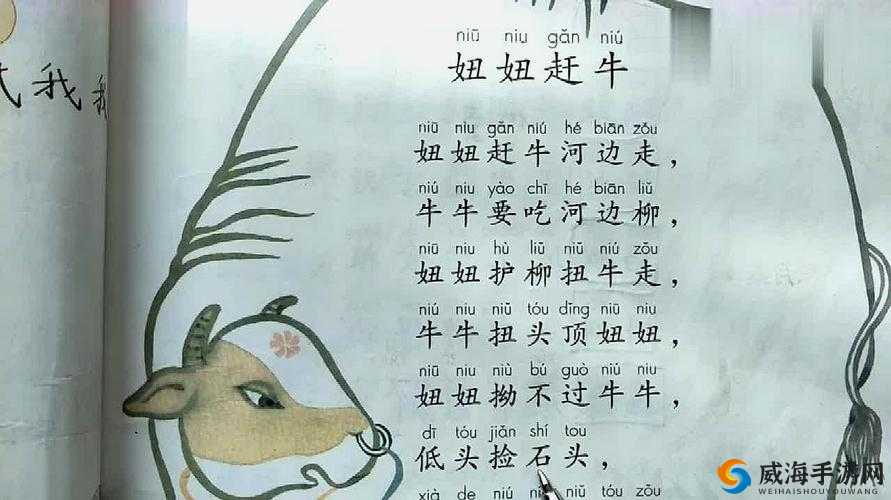 我
niū niu gǎn niú
妞妞赶牛
niū niu gǎn niú hé biān zǒu
妞妞赶牛河边走，
niú niu yào chī hé biān liǔ
牛牛要吃河边柳，
niū niu hù liǔ niǔ niú zǒu
妞妞护柳扭牛走，
niú niu niǔ tóu dǐng niū niu
牛牛扭头顶妞妞，
niū niu niù bú guò niú niu
妞妞拗不过牛牛，
dī tóu jiǎn shí tou
低头捡石头，
xià de niú niu niǔ tóu zǒu
威海手游网
WEIHAISHOUYOUWANG